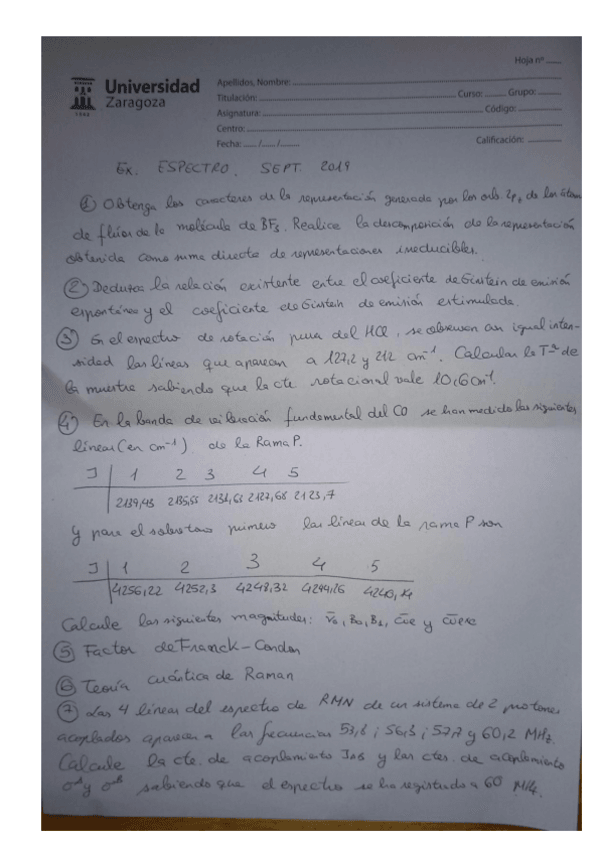 Hoja nº
Universidad
Zaragoza
1542
Apellidos, Nombre:
Titulación: Curso: Grupo:
Asignatura: Código:
Centro:
Fecha: / / Calificación:
EX. ESPECTRO. SEPT. 2019
① Obtenga los caracteres de la representación generada por los orb. 2p, de los átom
de flúor de la molécula de BF3. Realice la descomposición de la representación
obtenida como suma directa de representaciones irreducibles.
② Deduzca la relación existente entre el coeficiente de Einstein de emisión
espontánea y el coeficiente de Einstein de emisión estimulada.
③ En el espectro de rotación pura del HCl, se observan con igual inten-
sidad las líneas que aparecen a 127,2 y 212 cm⁻¹. Calcular la Tª de
la muestra sabiendo que la cte rotacional vale 10,6 cm⁻¹.
④ En la banda de vibración fundamental del CO se han medido las siguientes
líneas (en cm⁻¹) de la Rama P.
J | 1 2 3 4 5
2139,43 2135,55 2131,63 2127,68 2123,7
Y para el sobretono primero las líneas de la rama P son
J | 1 2 3 4 5
4256,22 4252,3 4248,32 4244,26 4240,14
Calcule las siguientes magnitudes: ν̄0, B0, B1, ω̄e y ω̄exe
⑤ Factor de Franck-Condon
⑥ Teoría cuántica de Raman
⑦ Las 4 líneas del espectro de RMN de un sistema de 2 protones
acoplados aparecen a las frecuencias 53,8; 56,3; 57,7 y 60,2 MHz.
Calcule la cte. de acoplamiento JAB y las ctes. de acoplamiento
σA y σB sabiendo que el espectro se ha registrado a 60 MHz.